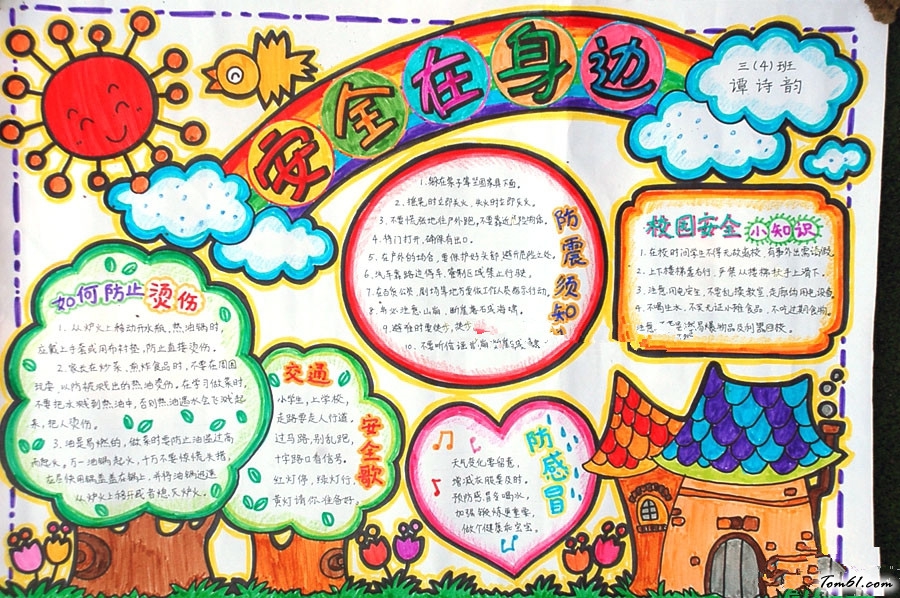 安全在身边
三(4)班
谭诗韵
防震须知
1.躲在桌子等坚固家具下面。
2.摇晃时立即关火,失火时立即灭火。
3.不要慌张地往户外跑,不要靠近
4.将门打开,确保有出口。
5.在户外的场合,要保护好头部,避开危险之处。
6.汽车靠路边停车,管制区域禁止行驶。
7.在百货公司、剧场等地方要依工作人员指示行动。
8.务必注意山崩、断崖落石或海啸。
9.避难时要徒步,
10.不要听信谣言,
校园安全小知识
1.在校时间学生不得无故离校,有事外出需请假。
2.上下楼梯靠右行,严禁从楼梯扶手上滑下。
3.注意用电安全,不要乱摸教室、走廊的用电设备。
4.不喝生水,不买无证小摊食品,不吃过期食物。
如何防止烫伤
1.从炉火上移动开水瓶,热油锅时,
应戴上手套或用布衬垫,防止直接烫伤。
2.家长在炒菜、煎炸食品时,不要在周围
玩耍,以防被溅出的热油烫伤。在学习做菜时,
不要把水溅到热油中,否则热油遇水会飞溅起
来,把人烫伤。
3.油是易燃的,做菜时要防止油温过高
而起火。万一油锅起火,千万不要惊慌失措,
在尽快用锅盖盖在锅上,并将油锅迅速
从炉火上移开或者熄灭炉火。
交通安全歌
小学生,上学校,
走路要走人行道,
过马路,别乱跑,
十字路口看信号。
红灯停,绿灯行,
黄灯请你准备好。
防感冒
天气变化要留意,
增减衣服要及时。
预防感冒多喝水,
加强锻炼更重要,
做个健康乖宝宝。
Tom61.com